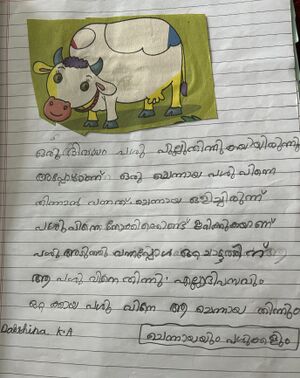 ഒരു ദിവസം പശു പുല്ല് തിന്നുകയായിരുന്നു
അപ്പോഴാണ് ഒരു ചെന്നായ പശുവിനെ
തിന്നാൻ വന്നത് ചെന്നായ ഒളിച്ചിരുന്ന്
പശുവിനെ നോക്കിക്കൊണ്ട് ഇരിക്കുകയാണ്
പശു അടുത്തു വന്നപ്പോൾ ഒറ്റ ചാട്ടത്തിന്
ആ പശു വിനെ തിന്നു. എല്ലാദിവസവും
ഒറ്റ ക്കായ പശു വിനെ ആ ചെന്നായ തിന്നും
Dakshina K.A
ചെന്നായയും പശുക്കളും